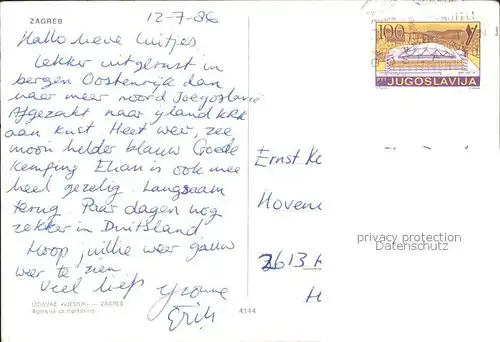 ZAGREB
12-7-86
Hallo lieve luitjes
Lekker uitgerust in
bergen Oostenrijk dan
naar meer noord Joegoslavie
Afgezakt naar yland KRK
aan kust Heet weer, zee
mooi helder blauw Goede
Kemping Elian is ook mee
heel gezelig. Langzaam
terug. Paar dagen nog
zekker in Duitsland
Hoop jullie weer gauw
weer te zien
Veel liefs Yvonne
Erik
IZDANJE »VJESNIK« — ZAGREB
Agencija za marketing
4144
100
PTT JUGOSLAVIJA
Ernst Ke
Hoven
2613
H
privacy protection
Datenschutz